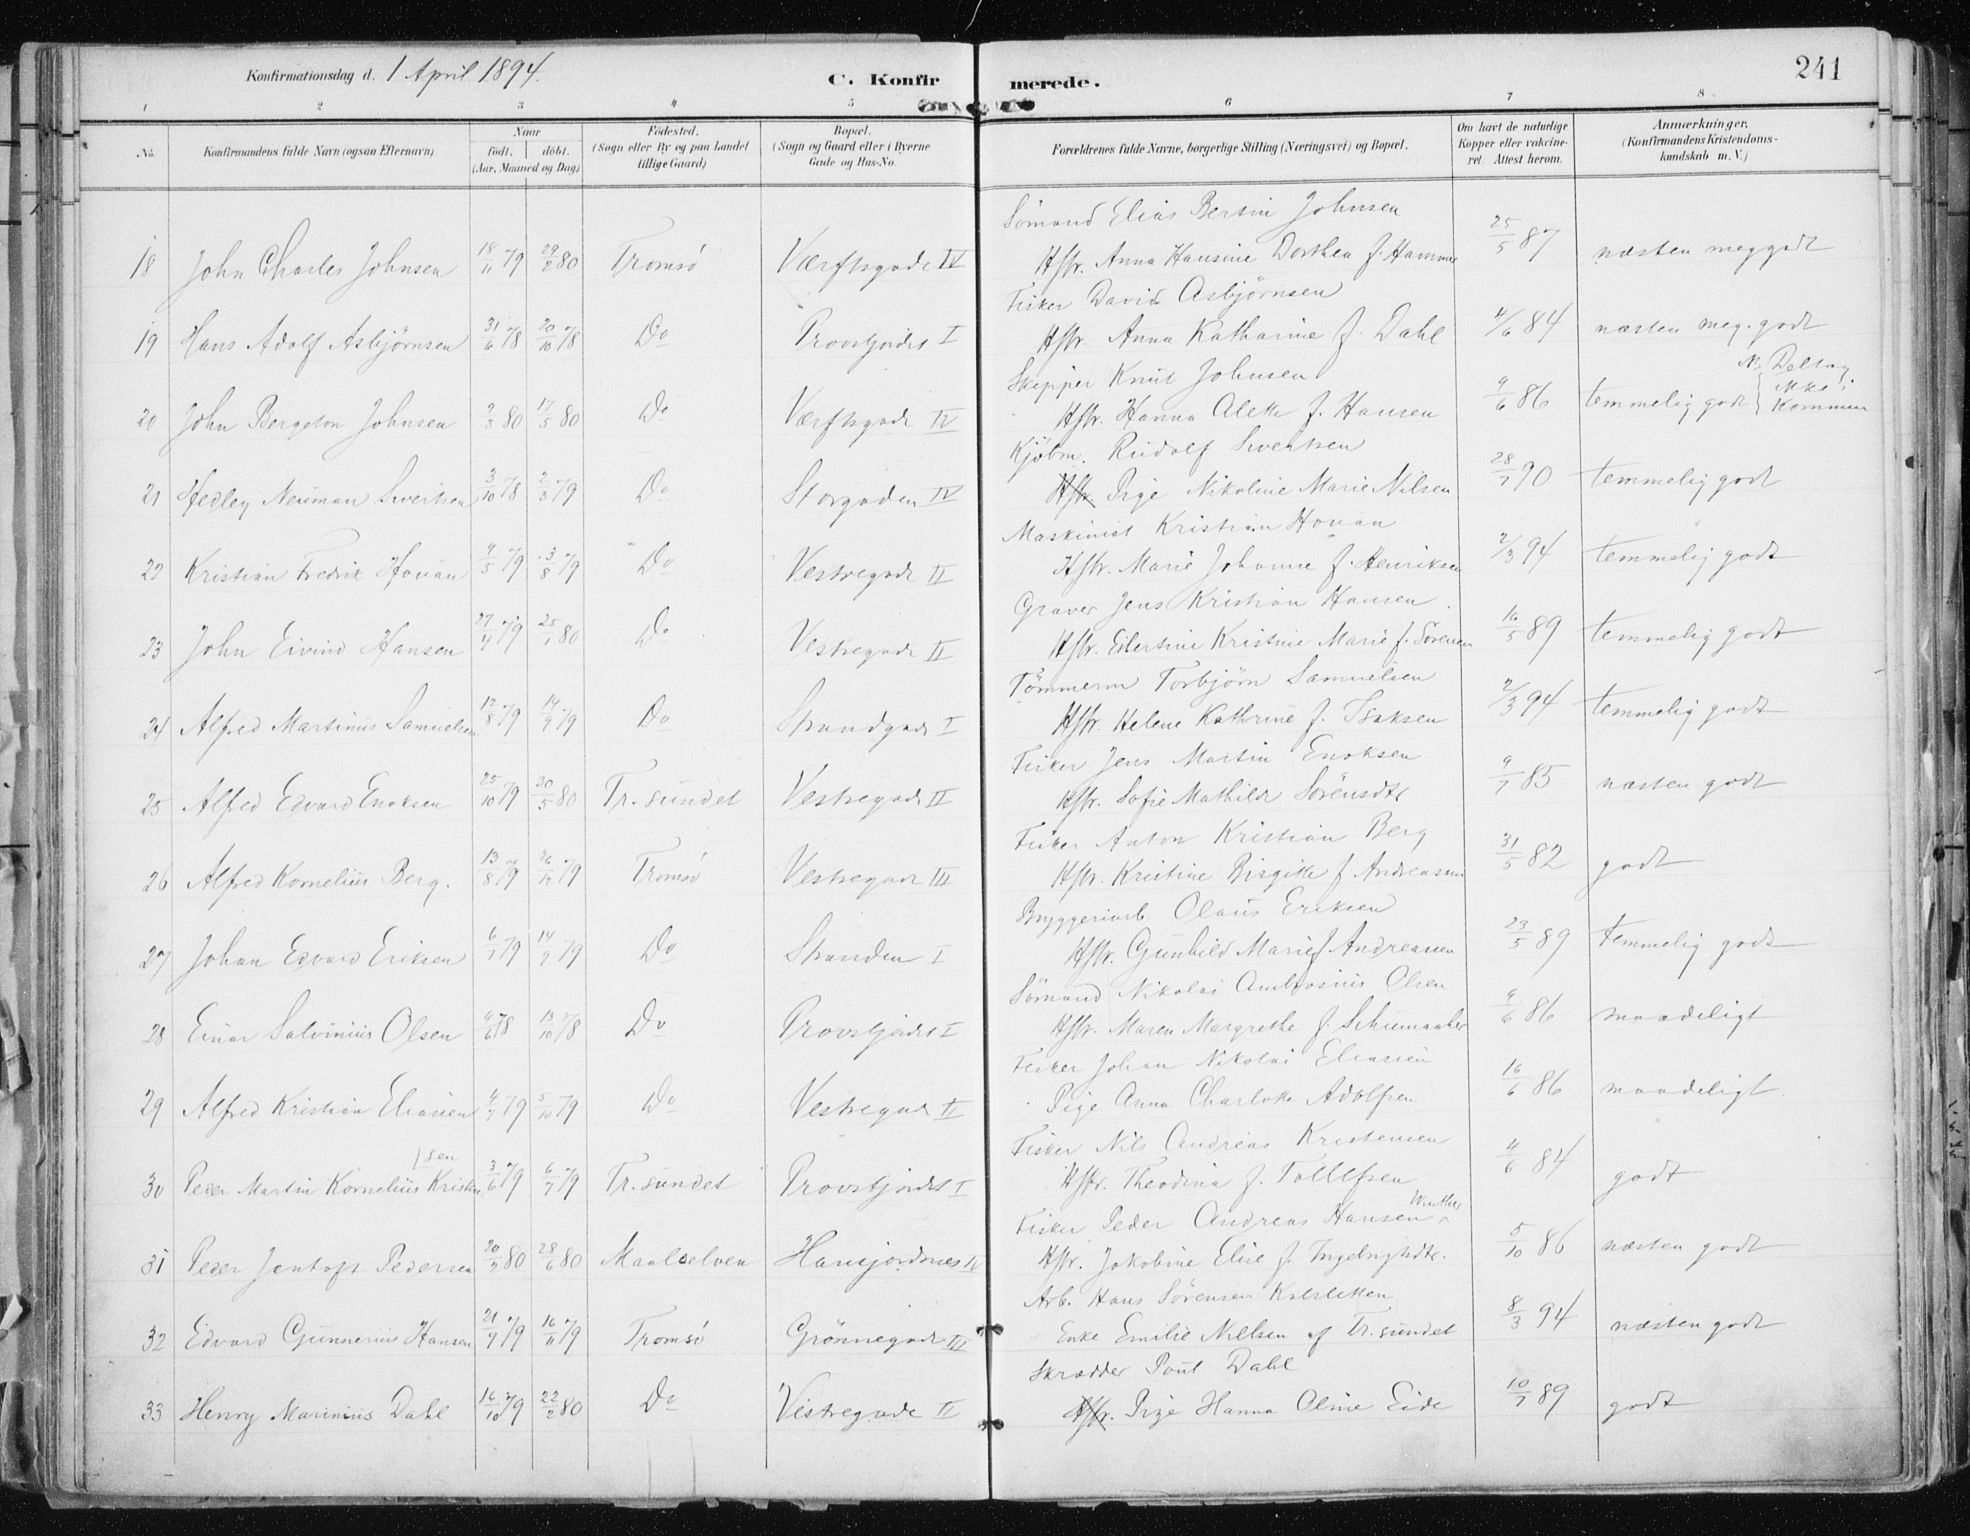 Konfirmationsdag d. 1 April 1894.
C. Konfirmerede.
241
1 2 3 4 5 6 7 8
No. Konfirmandens fulde Navn (ogsaa Efternavn) Naar født, døbt. (Aar, Maaned og Dag) Fødested. (Sogn eller By og paa Landet tillige Gaard) Bopæl. (Sogn og Gaard eller i Byerne Gade og Hus-No. Forældrenes fulde Navne, borgerlige Stilling (Næringsvei) og Bopæl. Om havt de naturlige Kopper eller vakcineret. Attest herom. Anmærkninger. (Konfirmandens Kristendomskundskab m. V.)
Sømand Elias Bertin Johnsen
18 John Charles Johnsen 18/11 79 29/2 80 Tromsø Værftsgade IV Hstr. Anna Hansine Dorthea f. 25/5 87 næsten meg godt
Fisker David Asbjørnsen
19 Hans Adolf Asbjørnsen 31/6 78 20/10 78 Do Provstjordet I Hstr. Anna Katharine f. Dahl 4/6 84 næsten meg. godt
Skipper Knut Johnsen
20 John Bergeton Johnsen 9/3 80 17/5 80 Do Værftsgade IV Hstr. Hanna Aleth f. Hansen 9/6 86 temmelig godt NB Deltog ikke i Kommun
Kjøbm. Rudolf Sivertsen
21 Hedley Neuman Sivertsen 3/10 78 2/3 79 Do Storgaden IV Hstr. Pige Nikoline Marie Nilsen 28/7 90 temmelig godt
Maskinist Kristian Hovan
22 Kristian Fredrik Hovan 9/5 79 3/8 79 Do Vestregade II Hstr. Marie Johanne f. Henriksen 2/3 94 temmelig godt
Graver Jens Kristian Hansen
23 John Eivind Hansen 27/4 79 25/1 80 Do Vestregade II Hstr. Eilertine Kristine Marie f. Sørensen 16/5 89 temmelig godt
Tømmerm Torbjørn Samuelsen
24 Alfred Martinus Samuelsen 12/8 79 14/9 79 Do Strandgade I Hstr. Helene Kathrine f. Isaksen 2/3 94 temmelig godt
Fisker Jens Martin Enoksen
25 Alfred Edvard Enoksen 25/10 79 30/5 80 Tr. sundet Vestregade II Hstr. Sofie Mathilde Sørensdtr 9/7 85 næsten godt
Fisker Anton Kristian Berg
26 Alfred Kornelius Berg. 13/8 79 26/12 79 Tromsø Vestregade III Hstr. Kristine Birgitte f Andreassen 31/5 82 godt
Bryggeriarb. Olaus Eriksen
27 Johan Edvard Eriksen 6/7 79 14/9 79 Do Stranden I Hstr. Gunhild Marie f Andreasen 23/5 89 temmelig godt
Sømand Nikolai Ambrosius Olsen
28 Einar Salvinius Olsen 9/6 78 13/10 78 Do Provstjordet I Hstr. Maren Margrethe f. Schumacher 9/6 86 maadeligt
Fisker Johan Nikolai Eliasen
29 Alfred Kristian Eliasen 4/7 79 5/10 79 Do Vestregade II Pige Anna Charlotte Adolfsen 16/6 86 maadeligt
Fisker Nils Andreas Kristensen
30 Peder Martin Kornelius Kristensen 3/6 79 6/7 79 Tr. sundet Provstjordet I Hstr. Theodina f. Tollefsen 4/6 84 godt
Fisker Peder Andreas Hansen Winther
31 Peder Jentoft Pedersen 20/2 80 28/6 80 Maalselven Hansjordnes IV Hstr. Jakobine Elise f. Ingebrigtsdtr. 5/10 86 næsten godt
Arb. Hans Sørensen
32 Edvard Gunnerius Hansen 21/9 79 16/11 79 Tromsø Grønnegade III Enke Emilie Nilsen af Tr. sundet 8/3 94 næsten godt
Skrædder Poul Dahl
33 Henry Marinius Dahl 16/10 79 22/2 80 Do Vestregade II Hstr. Pige Hanna Oline Eide 10/7 89 godt